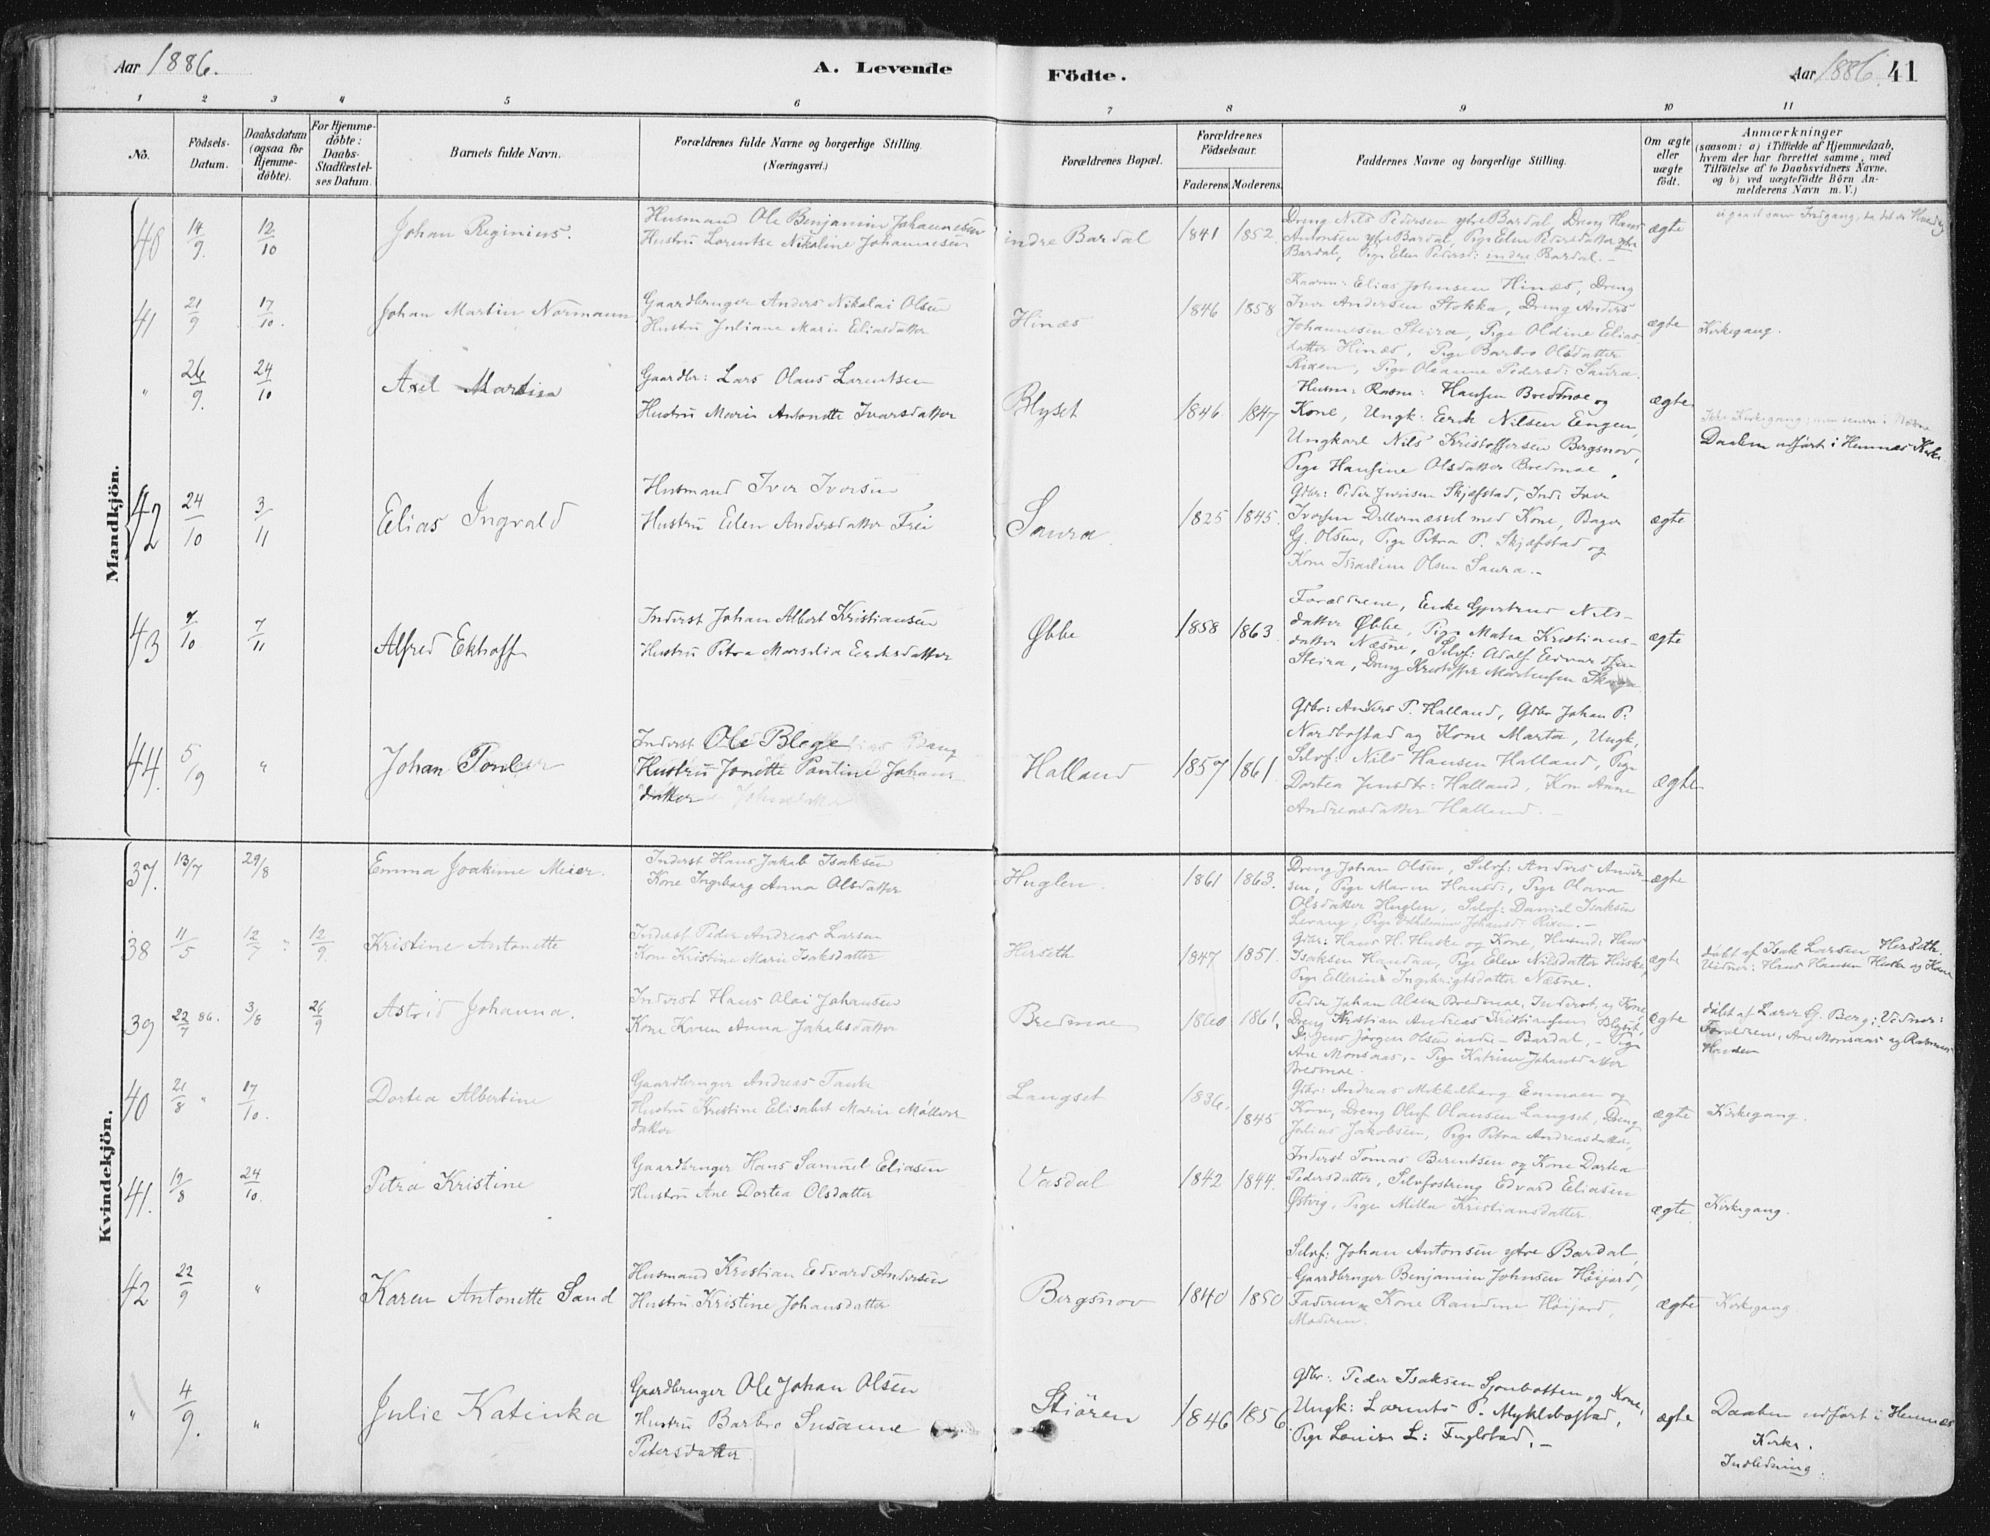 Aar 1886.
A. Levende Födte.
Aar 1886. 41
1 2 3 4 5 6 7 8 9 10 11
No.
Födsels-Datum.
Daabsdatum (ogsaa för Hjemme-döbte).
For Hjemme-döbte: Daabs-Stadfæstel-ses Datum.
Barnets fulde Navn.
Forældrenes fulde Navne og borgerlige Stilling. (Næringsvei.)
Forældrenes Bopæl.
Forældrenes Födselsaar.
Faderens. Moderens.
Faddernes Navne og borgerlige Stilling.
Om ægte eller uægte födt.
Anmærkninger
(saasom: a) i Tilfælde af Hjemmedaab, hvem der har forrettet samme, med Tilföielse af to Daabsvidners Navne, og b) ved uægtefödte Börn An-melderens Navn m. V.)
Mandkjön.
40 14/9. 12/10 Johan Reginius.
Husmand Ole Benjamin Johannesen
Hustru Lorentse Nikoline Johannesen
indre Bardal 1841 1852.
Dreng Nils Pedersen ytre Bardal, Dreng Hans
Antonsen ytre Bardal, Pige Elen Pedersdatter ytre
Bardal, Pige Elen Pedersd: indre Bardal. -
ægte
41 21/9 17/10. Johan Martin Normann
Gaardbruger Anders Nikolai Olsen
Hustru Juliane Marie Eliasdatter
Hinæs 1846 1858
Kaarm: Elias Johnsen Hinæs, Dreng
Iver Andersen Stokka, Dreng Anders
Johannesen Steira, Pige Oldine Elias
datter Hinæs, Pige Barbro Olsdatter
Rixen, Pige Oleanne Pedersd: Saura.
ægte Kirkegang.
" 26/9. 24/10 Axel Martin
Gaardbr: Lars Olaus Lorentsen
Hustru Marie Antonette Ivarsdatter
Blyset 1846 1847
Husm: Rasm: Hansen Bredmoe og
Kone, Ungk: Eerik Nilsen Eengen,
Ungkarl Nils Kristoffersen Bergsnov,
Pige Hansine Olsdatter Bredmoe,
ægte
Daaben udført i Hemnæs Kirke.
42 24/10 3/11 Elias Ingvald
Husmand Iver Iversen
Hustru Elen Andersdatter Frei
Saura. 1825 1845.
Gdbr: Peder Jurisen Skjæfstad, Ind: Iver
Iversen Dillernæsset med Kone, Bager
G. Olsen, Pige Petra P. Skjæfstad og
Kone Israeline Olsen Saura. -
ægte
43 4/10 7/11 Alfred Ekhoff
Inderst Johan Albert Kristiansen
Hustru Petra Marselia Eeriksdatter
Øbbe 1858 1863.
Forældrene, Enke Gjertrud Nils-
datter Øbbe, Pige Matea Kristians-
datter Næsne, Selvf: Adolf Edvardsen
Steira, Dreng Kristoffer Markusen
ægte
44. 5/9 " Johan
Inderst Ole Blege
Hustru Jonette Pauline Johans
datter
Halland 1857 1861.
Gdbr: Anders P. Halland, Gdbr Johan P.
Nordbostad og Kone Marta, Ungk:
Selvf: Nils Hansen Halland, Pige
Dortea Jensdtr: Halland, Kone Anne
Andreasdatter Halland. -
ægte
Kvindekjön.
37. 13/7 29/8 Emma Joakime Meier.
Inderst Hans Jakob Isaksen
Kone Ingeborg Anna Olsdatter
Huglen. 1861 1863.
Dreng Johan Olsen, Selvf: Anders Ander-
sen, Pige Maren Hansd:, Pige Olava
Olsdatter Huglen, Selvf: Daniel Isaksen
Levang, Pige Johansd: Rixen. -
ægte
38 11/5 12/7 " 12/9. Kristine Antonette
Inderst Peder Andreas Larsen
Kone Kristine Marie Isaksdatter
Herseth 1847 1851.
Gdbr: Hans H. Huske og Kone, Husmd: Hans
Isaksen Handaa, Pige Elen Nilsdatter Huske,
Pige Ellerine Ingebrigtsdatter Næsne.
ægte
døbt af Isak Larsen Herseth.
Vidner: Hans Hansen Huske og Kone
39 22/7 86. 3/8 26/9 Astrid Johanna.
Inderst Hans Olai Johansen
Kone Karen Anna Jakobsdatter
Bredmoe 1860. 1861.
Peder Johan Olsen Bredmoe, Inderst, og Kone,
Dreng Kristian Andreas Kristiansen Blyset,
D: Jens Jörgen Olsen nedre - Bardal, - Pige
Ane Monsaas, - Pige Katrine Johansdatter
Bredmoe.
ægte
døbt af Lærer G. Berg; Vidner:
Forældrene, Ane Monsaas og Rasmus
Hansen
40 21/8 " 17/10. Dortea Albertine
Gaardbruger Andreas Tanke
Hustru Kristine Elisabet Marie Møllers
datter
Langset 1836. 1845
Gdbr: Andreas Mikkelborg Enmoen og
Kone, Dreng Oluf Olausen Langset, Dreng
Julius Jakobsen, Pige Petra Andreasdatter,
ægte Kirkegang.
41. 19/8 24/10. Petra Kristine
Gaardbruger Hans Samuel Eliasen
Hustru Ane Dortea Olsdatter
Vasdal 1842 1844.
Inderst Tomas Berentsen og Kone Dortea
Pedersdatter, Selvfostreng Edvard Eeliasen
Østvig, Pige Milla Kristiansdatter.
ægte. Kirkegang.
42 22/9 " Karen Antonette Sand
Husmand Kristian Eedvard Andersen
Hustru Kristine Johansdatter
Bergsnov 1840 1850
Selvf: Johan Antonsen ytre Bardal,
Gaardbruger Benjamin Johnsen Höijord,
Faderen & Kone Randine Höijord,
Moderen.
ægte Kirkegang
" 4/9. " Julie Katinka
Gaardbruger Ole Johan Olsen
Hustru Barbro Susanne
Petersdatter
Stiören 1846 1856.
Gdbr: Peder Isaksen Sjonbotten og Kone,
Ungk: Lorents P. Myklebostad,
Pige Lovise L: Fuglstad. -
ægte
Daaben udført i Hemnæs
Kirke.
Indledning.